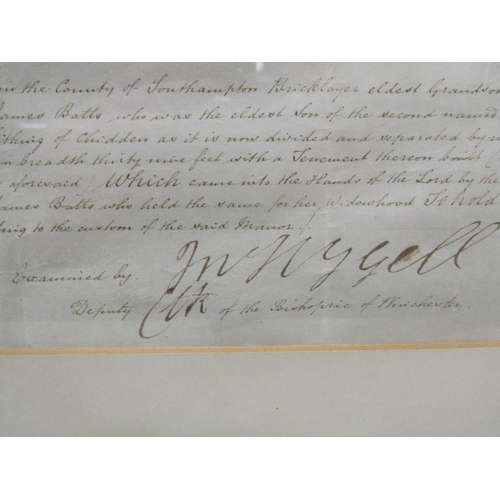 in the County of Southampton Bricklayer eldest Grandson
James Batts who was the eldest Son of the second named
Tithing of Chidden as it is now divided and separated by
in breadth thirty nine feet with a Tenement thereon built
aforesaid) Which came into the Hands of the Lord by the
James Batts who held the same for her Widowhood To hold
to the custom of the said Manor/
Examined by
Deputy Clk of the Bishopric of Winchester